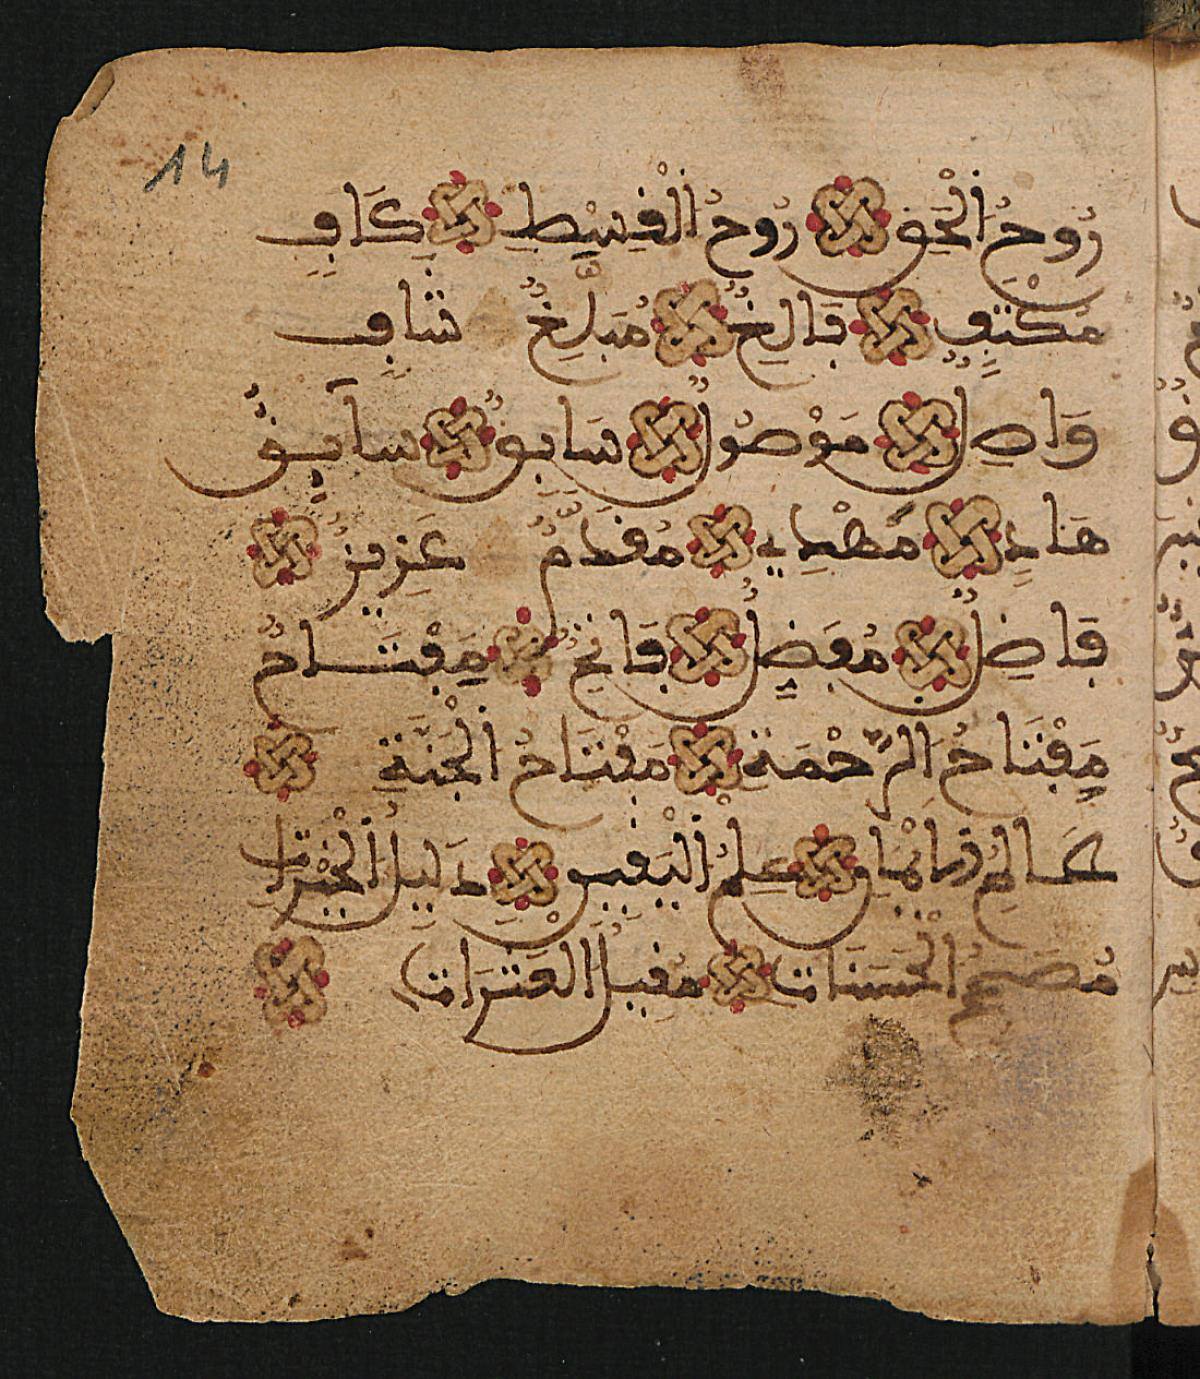 14
رُوحُ الْحَقِ رُوحُ الْقِسْطِ كَافٍ
مُكْتَفٍ بَالِغٌ مُبَلِّغٌ شَافٍ
وَاصِلٌ مَوْصُولٌ سَابِقٌ سَآيِقٌ
هَادٍ مُهْدِي مُقَدَّمٌ عَزِيزٌ
فَاضِلٌ مُفَضَّلٌ فَاتِحٌ مِفْتَاحٌ
مِفْتَاحُ الرَّحْمَةِ مِفْتَاحُ الْجَنَّةِ
عَالِمُ الْاِيمَانِ عِلْمُ الْيَقِينِ دَلِيلُ الْخَيْرَاتِ
مُصَحِّحُ الْحَسَنَاتِ مُقِيلُ الْعَثَرَاتِ